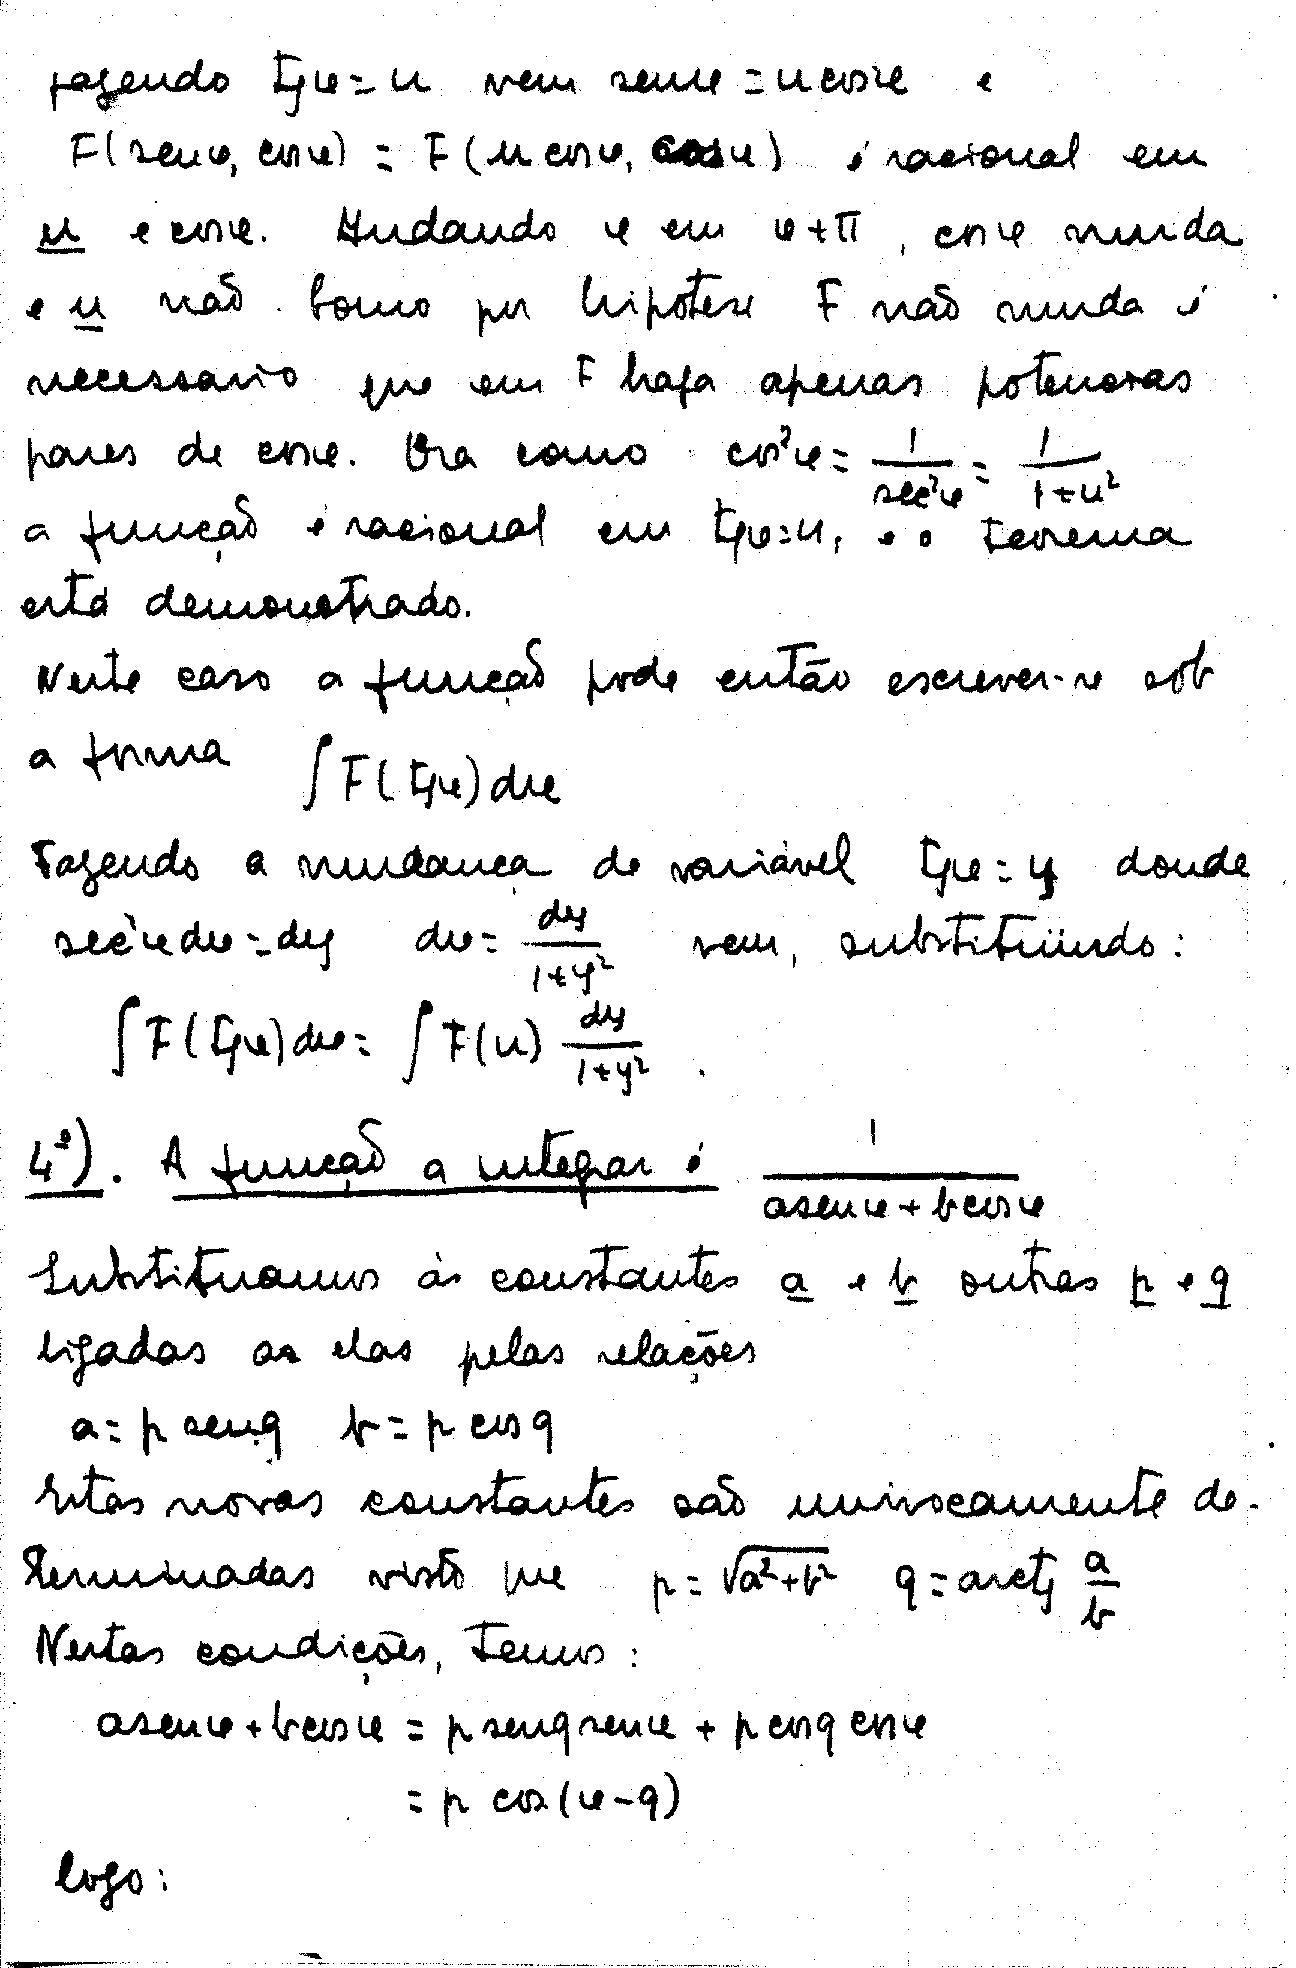 fazendo tgφ = u vem senφ = u cosφ e
F(senφ, cosφ) = F(u cosφ, cosφ) é racional em
u e cosφ. Mudando φ em φ+π, cosφ muda
e u não. Como por hipótese F não muda é
necessario que em F haja apenas potencias
pares de cosφ. Ora como cos²φ = 1/sec²φ = 1/(1+u²)
a função é racional em tgφ = u, e o teorema
está demonstrado.
Neste caso a função pode então escrever-se sob
a forma ∫F(tgφ)dφ
Fazendo a mudança de variável tgφ = y donde
sec²φdφ = dy dφ = dy/(1+y²) vem, substituindo:
∫F(tgφ)dφ = ∫F(u) dy/(1+y²).
4º). A função a integrar é 1/(a senφ + b cosφ)
Substituamos às constantes a e b outras p e q
ligadas as elas pelas relações
a = p senq b = p cosq
Estas novas constantes são univocamente de-
terminadas visto que p = √(a²+b²) q = arctg a/b
Nestas condições, temos:
a senφ + b cosφ = p senq senφ + p cosq cosφ
= p cos(φ-q)
logo: